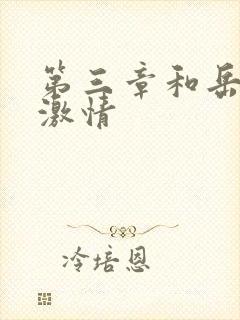 第三章和岳
激情
冷培恩